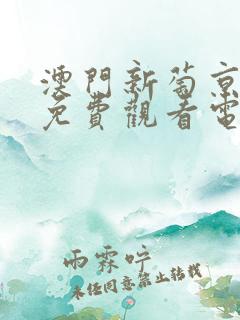 澳門新葡京
免費觀看電
雨霖哼
未经同意禁止转载